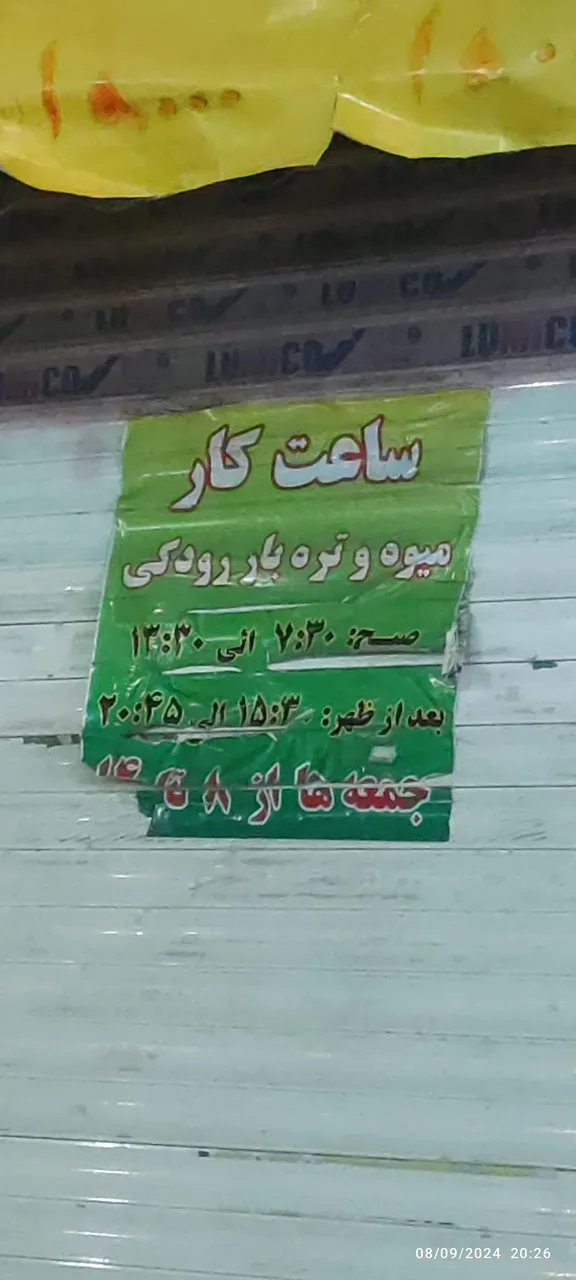 ۱۵۰۰۰
LUMICO LUMICO LUMICO
ساعت کار
میوه و تره بار رودکی
صبح: ۷:۳۰ الی ۱۳:۳۰
بعد از ظهر: ۱۵:۳۰ الی ۲۰:۴۵
جمعه ها از ۸ تا ۱۴
08/09/2024 20:26